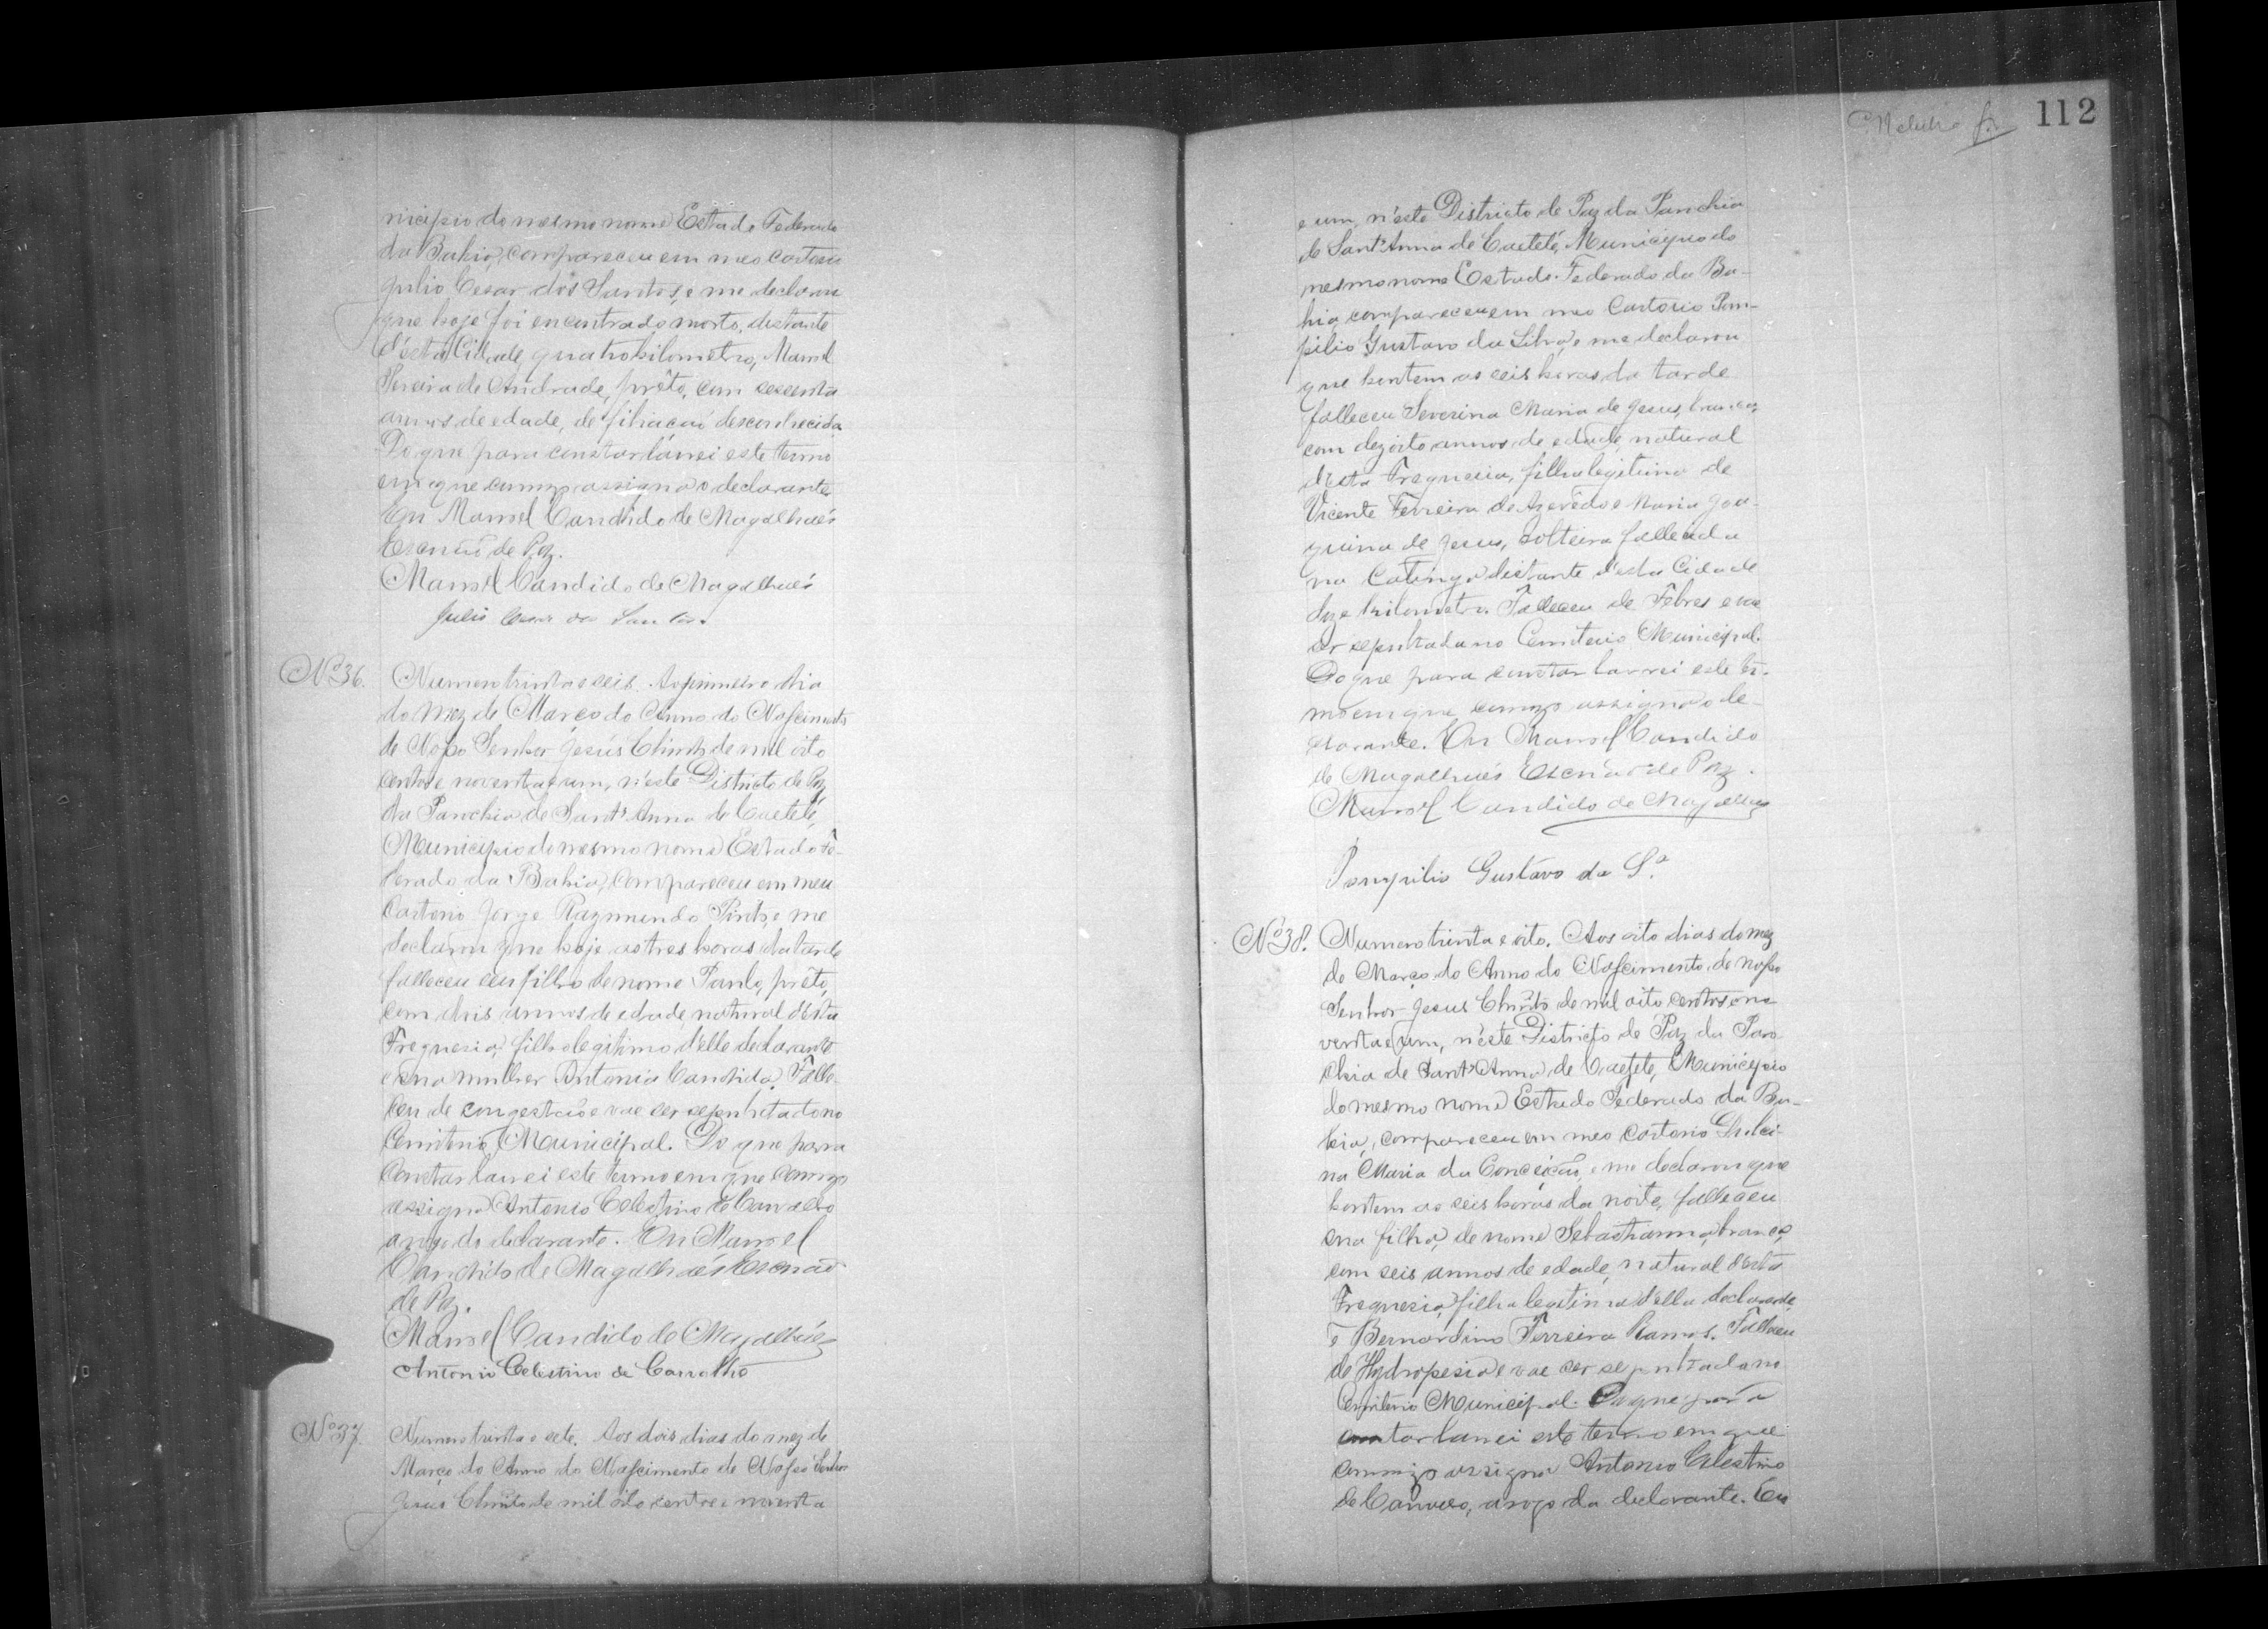 nicipio do mesmo nome Estado Federado
da Bahia, compareceu em meo cartorio
Julio Cesar dos Santos, e me declarou
que hoje foi encontrado morto, distante
d'esta Cidade quatro kilometros, Manoel
Pereira de Andrade, prêto, com sessenta
annos de edade, de filiação desconhecida.
Do que para constar lavrei este termo
em que comigo assigna o declarante.
Eu Manoel Candido de Magalhães
Escrivão de Paz.
Manoel Candido de Magalhães
Julio Cesar dos Santos.
Nº 36.
Numero trinta e seis. Ao primeiro dia
do mez de Março do Anno do Nascimento
de Nosso Senhor Jesús Christo de mil oito
centos e noventa e um, n'este Districto de Paz
da Parochia de Sant'Anna de Caeteté,
Municipio do mesmo nome Estado Fe-
derado da Bahia, compareceu em meu
Cartorio Jorge Raymundo Pinto, e me
declarou que hoje as tres horas da tarde
falleceu seu filho de nome Paulo, prêto,
com dois annos de edade, natural d'esta
Freguesia, filho legitimo d'elle declarante
e sua mulher Antonia Candida. Falle-
ceu de congestão e vae ser sepultado no
Cemiterio Municipal. Do que para
constar lavrei este termo em que comigo
assigna Antonio Celestino de Carvalho
a rogo do declarante. Eu Manoel
Candido de Magalhães Escrivão
de Paz.
Manoel Candido de Magalhães
Antonio Celestino de Carvalho
Nº 37.
Numero trinta e sete. Aos dois dias do mez de
Março do Anno do Nascimento de Nosso Senhor
Jesus Christo de mil oito centos e noventa
112
e um, n'este Districto de Paz da Parochia
de Sant'Anna de Caeteté, Municipio do
mesmo nome Estado Federado da Ba-
hia, compareceu em meo Cartorio Pom-
pilio Gustavo da Silva, e me declarou
que hontem as seis horas da tarde
falleceu Severina Maria de Jesus, branca,
com dezoito annos de edade, natural
d'esta Freguesia, filha legitima de
Vicente Ferreira de Azevêdo e Maria Joa-
quina de Jesus, solteira, fallecida
na Catinga distante d'esta Cidade
doze kilometros. Falleceu de Febres e vae
ser sepultada no Cemiterio Municipal.
Do que para constar lavrei este ter-
mo em que comigo assigna o de-
clarante. Eu Manoel Candido
de Magalhães Escrivão de Paz.
Manoel Candido de Magalhães
Pompilio Gustavo da Sª
Nº 38.
Numero trinta e oito. Aos oito dias do mez
de Março do Anno do Nascimento de Nosso
Senhor Jesus Christo de mil oito centos e no
venta e um, n'este Districto de Paz da Paro
chia de Sant'Anna de Caeteté, Municipio
do mesmo nome Estado Federado da Ba-
hia, compareceu em meo cartorio Dulci-
na Maria da Conceição, e me declarou que
hontem as seis horas da noite, falleceu
sua filha, de nome Sebastianna, branca,
com seis annos de edade, natural d'esta
Freguesia, filha legitima d'ella declarante
e Bernardino Ferreira Ramos. Falleceu
de Hydropesia e vae ser sepultada no
Cemiterio Municipal. Do que para
constar lavrei este termo em que
comigo assigna Antonio Celestino
de Carvalho, a rogo da declarante. Eu